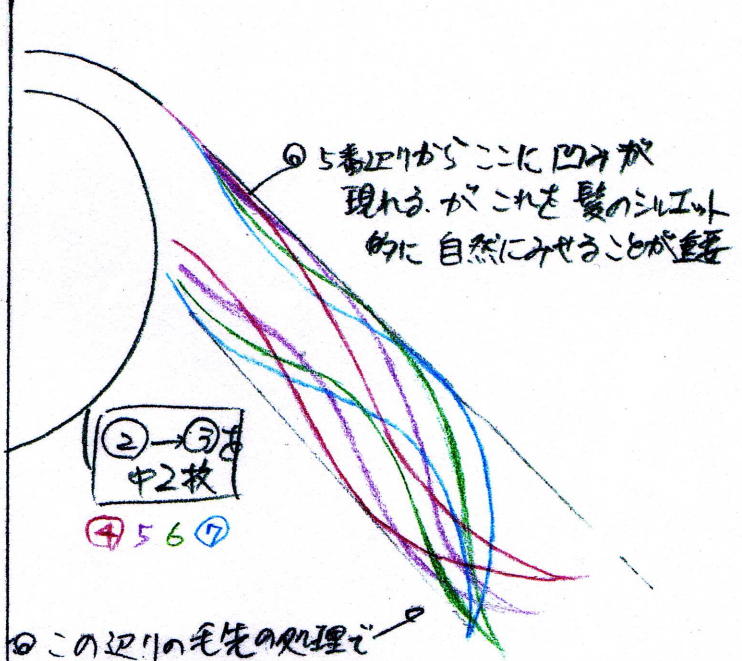 ◎ 5番辺りから ここに 凹みが
現れる.が これを 髪のシルエット
的に 自然にみせることが重要
②→③は
中2枚
④ 5 6 ⑦
◎ この辺りの毛先の処理で